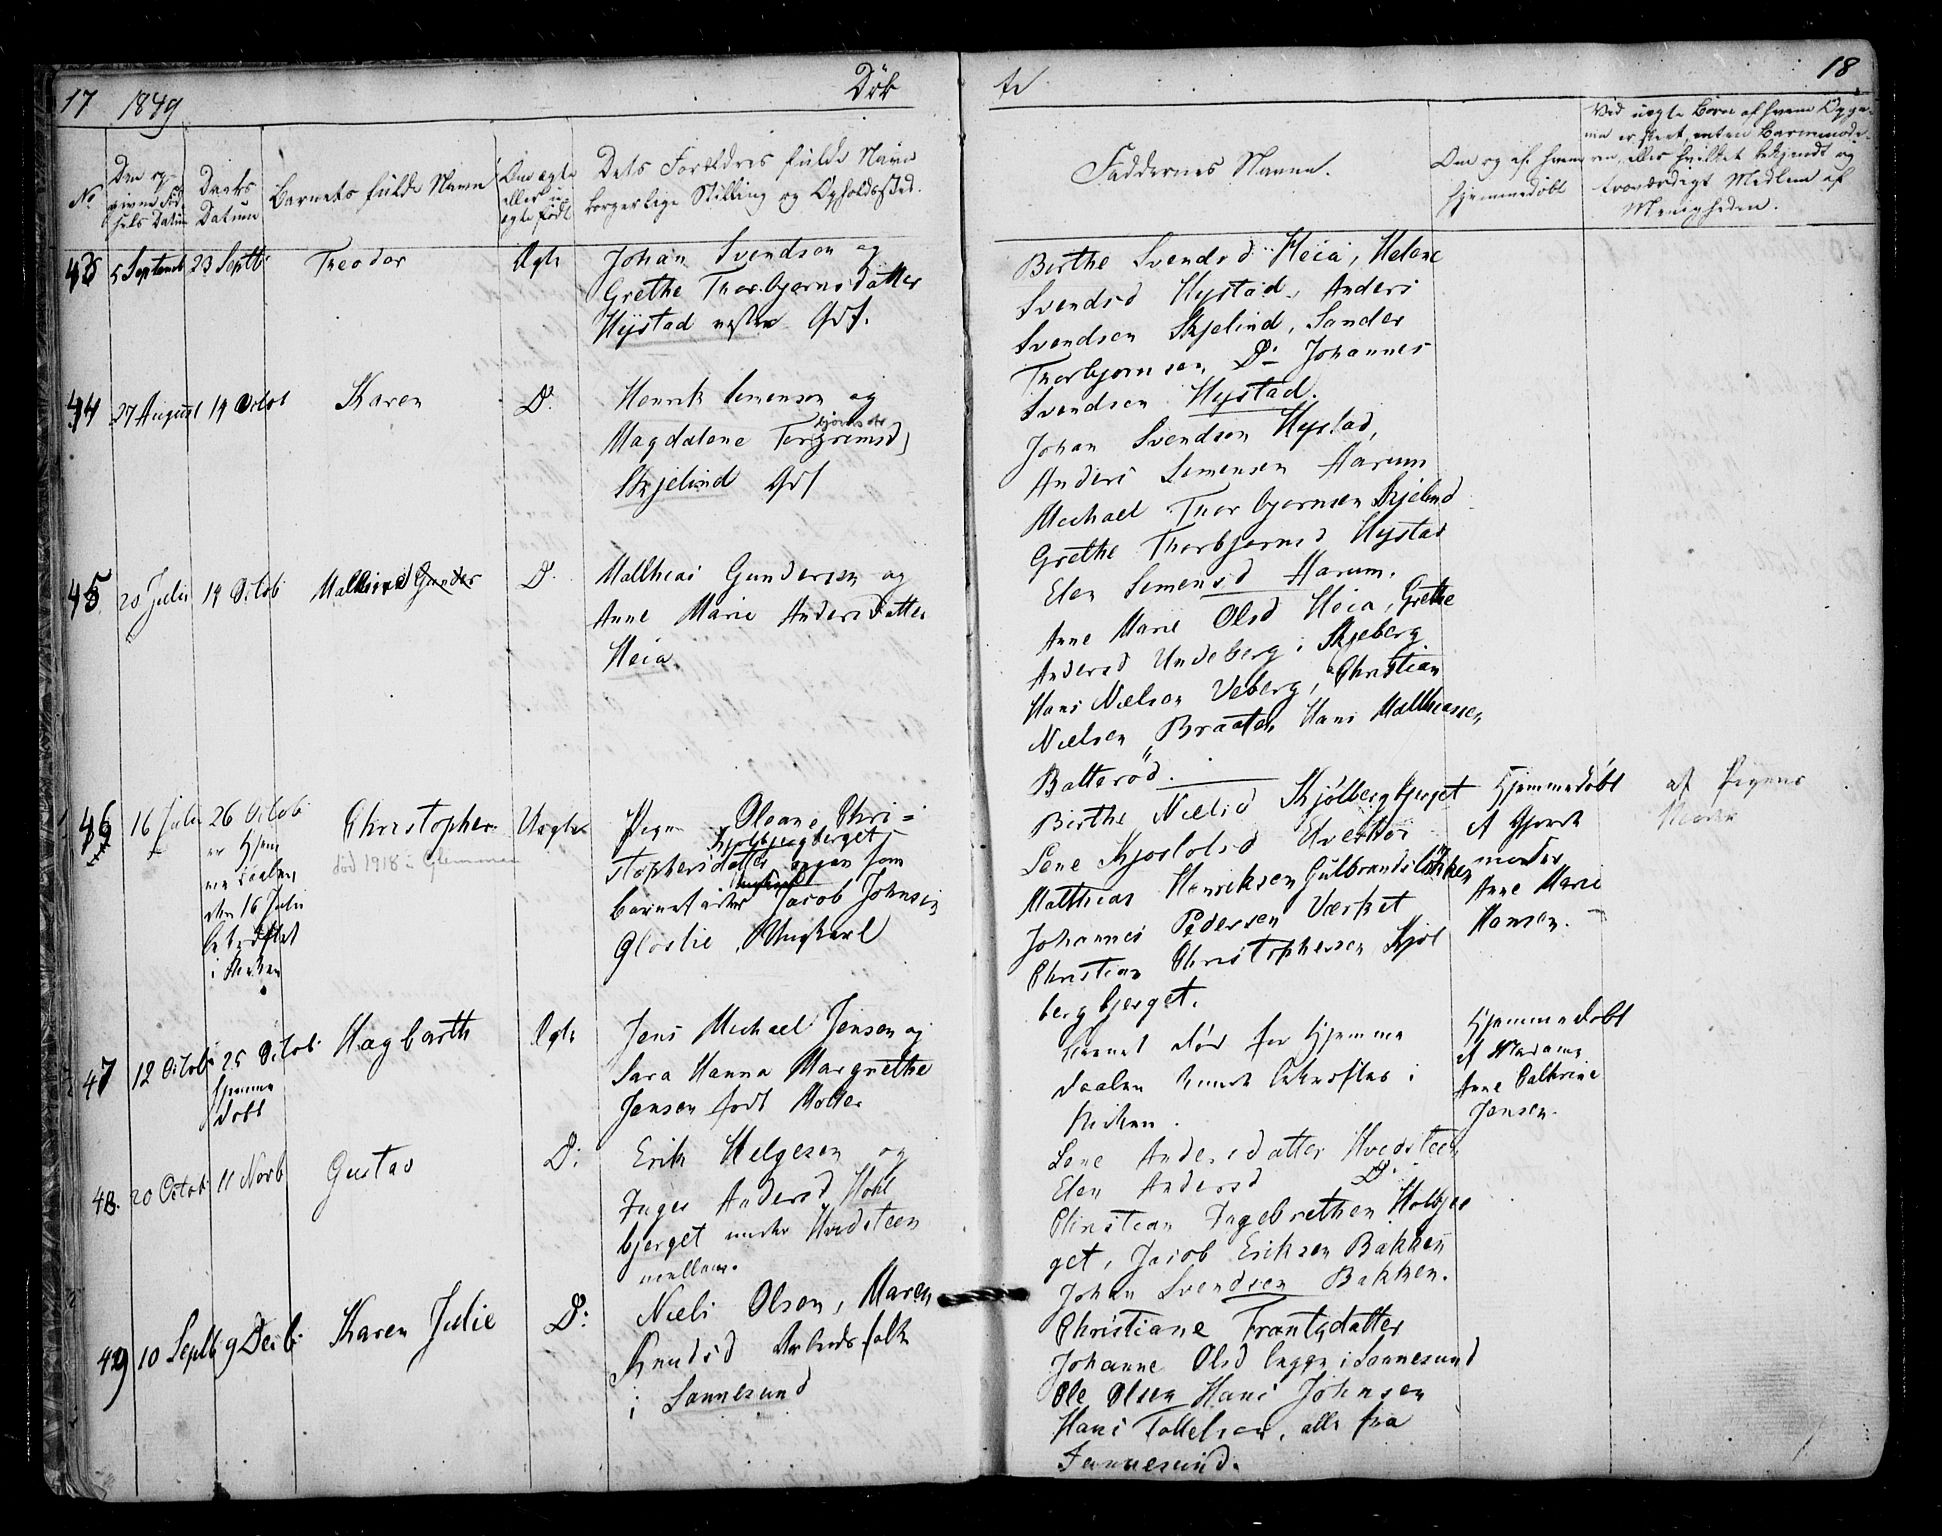 17 1849 Döb
te 18
No
Den op-
givne Föd-
sels Datum
Daabs
Datum
Barnets fulde Navn
Om ægte
eller u-
ægte född
Dets Foreldres fulde Navn
borgerlige Stilling og Opholdssted.
Faddernes Navne.
Om og af hvem
hjemmedöbt
Ved uægte Börn af hvem Opga-
ven er skeet, enten Barnemode-
ren, eller hvilket bekjendt og
troværdigt Medlem af
Menigheden.
43 5 Septemb 23 Septb Theodor Ægte
Johan Svendsen og
Grethe Thorbjørnsdatter
Hystad
Birthe Svendsd Heia, Helene
Svendsd Hystad, Anders
Svendsen Skjelind, Sander
Thorbjornsen D: Johannes
Svendsen Hystad.
44 27 August 14 Octob Karen D:
Henrik Simensen og
Magdalene Torgrimsd
Skjelind
Johan Svendsen Hystad,
Anders Simensen Aarum
Michael Thorbjornsen Skjelind
Grethe Thorbjornsd Hystad
Elen Simensd Aarum.
45 20 Julii 14 Octob D.
Mathias Gundersen og
Anne Marie Andersdatter
Heia.
Anne Marie Olsd Heia, Grethe
Andersd Undeberg i Skjeberg
Hans Nielsen Veberg, Christian
Nielsen Braaten, Hans Mathiassen
Batteröd.
46 16 Julii 26 Octob
er hjem
medaaben
den 16 Julii
bekræftet
i Kirken
Christopher
död 1918 i Glemmen
Uægte
Pigen Oleane Chri=
stophersdatter Kjölbergbjerget
som
barnefader Jacob Johnsen
Gloslie, Ungkarl
Birthe Nielsd Kjölbergbjerget
Lene Kjostolsd
Mathias Henriksen Gulbrandslökken
Johannes Pedersen Værket
Christian Christophersen Kjöl
bergbjerget.
Hjemmedöbt
af Gjord
moder
Anne Marie
Hansen.
af Pigens
Moder
47 12 Octob 25 Octob
hjemme
döbt
Hagbarth Ægte
Jens Michael Jensen og
Sara Hanna Margrethe
Jensen födt Möller
Barnet döde för Hjemme
daaben kunde bekræftes i
Kirken.
Hjemmedöbt
af Madame
Anne Cathrine
Jensen.
48. 20 Octob 11 Novb Gustav D:
Erik Helgesen og
Inger Andersd Hol
bjerget under Hvidsteen
mellem.
Lene Andersdatter Hvidsteen
Elen Andersd D:
Christian Ingebrethsen Holbjer
get, Jacob Eriksen Bakken
Johan Svendsen Bakken.
49 10 Septb 9 Decb Karen Julie D:
Niels Olsen, Maren
Knudsd Arbeidsfolk
i Sannesund
Christiane Frantzdatter
Johanne Olsd begge i Sannesund
Ole Olsen Hans Johnsen
Hans Tollefsen, alle fra
Sannesund.